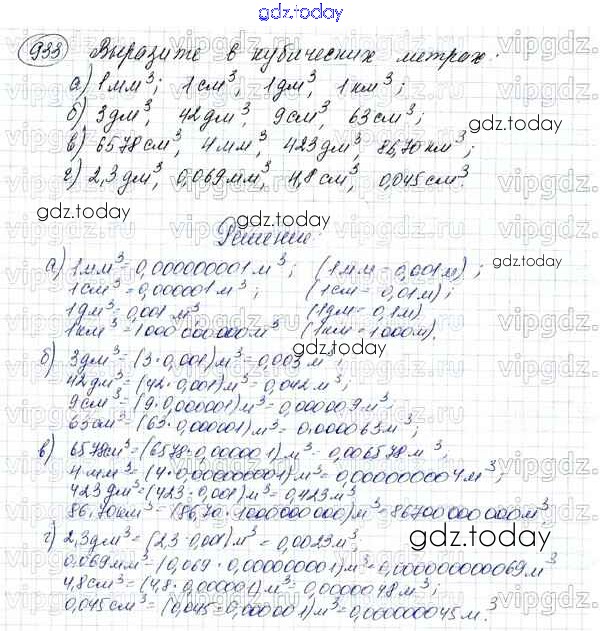 gdz.today
933 Выразите в кубических метрах:
а) 1 мм³; 1 см³, 1 дм³, 1 км³;
б) 3 дм³, 42 дм³, 9 см³, 63 см³;
gdz.today
в) 6578 см³, 4 мм³, 423 дм³, 86,70 км³;
г) 2,3 дм³, 0,069 мм³, 4,8 см³, 0,045 см³.
gdz.today
gdz.today
Решение:
а) 1 мм³ = 0,000000001 м³; (1 мм = 0,001 м);
gdz.today
1 см³ = 0,000001 м³; (1 см = 0,01 м);
1 дм³ = 0,001 м³ (1 дм = 0,1 м)
1 км³ = 1000 000 000 м³ (1 км = 1000 м).
gdz.today
б) 3 дм³ = (3 · 0,001) м³ = 0,003 м³;
42 дм³ = (42 · 0,001) м³ = 0,042 м³;
9 см³ = (9 · 0,000001) м³ = 0,000009 м³;
63 см³ = (63 · 0,000001) м³ = 0,000063 м³;
в) 6578 см³ = (6578 · 0,000001) м³ = 0,006578 м³;
4 мм³ = (4 · 0,000000001) м³ = 0,000000004 м³;
423 дм³ = (423 · 0,001) м³ = 0,423 м³;
86,70 км³ = (86,70 · 1000000000) м³ = 86700 000 000 м³.
gdz.today
г) 2,3 дм³ = (2,3 · 0,001) м³ = 0,0023 м³;
0,069 мм³ = (0,069 · 0,000000001) м³ = 0,000000000069 м³;
4,8 см³ = (4,8 · 0,000001) м³ = 0,0000048 м³;
0,045 см³ = (0,045 · 0,000001) м³ = 0,000000045 м³.
gdz.today